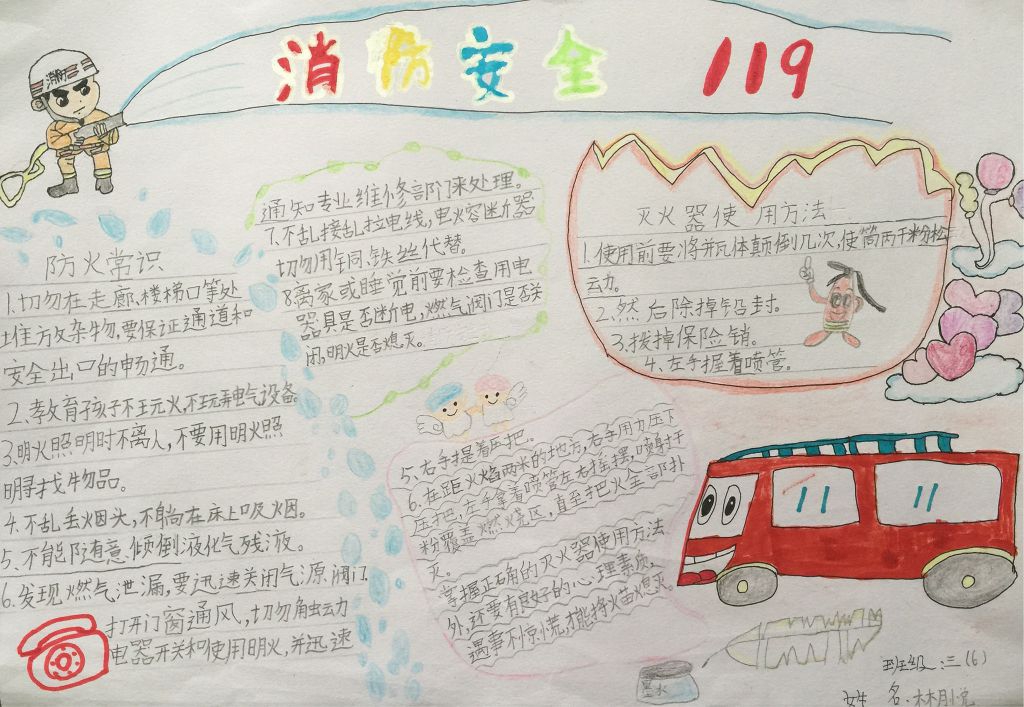 消防安全 119
消防
防火常识
1.切勿在走廊、楼梯口等处
堆放杂物,要保证通道和
安全出口的畅通。
2、教育孩子不玩火,不玩弄电气设备。
3.明火照明时不离人,不要用明火照
明寻找物品。
4、不乱丢烟头,不躺在床上吸烟。
5、不能随意、倾倒液化气残液。
6.发现燃气泄漏,要迅速关闭气源阀门,
打开门窗通风,切勿触动
电器开关和使用明火,并迅速
通知专业维修部门来处理。
7、不乱接乱拉电线,电火容断器
切勿用铜、铁丝代替。
8离家或睡觉前要检查用电
器具是否断电,燃气阀门是否关
闭,明火是否熄灭。
灭火器使用方法
1.使用前要将瓶体颠倒几次,使筒内干粉松
动。
2.然后除掉铅封。
3.拔掉保险销。
4、左手握着喷管。
5、右手提着压把。
6、在距火焰两米的地方,右手用力压下
压把,左手拿着喷管左右摇摆,喷射干
粉覆盖燃烧区,直至把火全部扑
灭。
掌握正确的灭火器使用方法
外,还要有良好的心理素质,
遇事不惊慌,才能将火苗熄灭
墨水
班级:三(6)
姓名:林